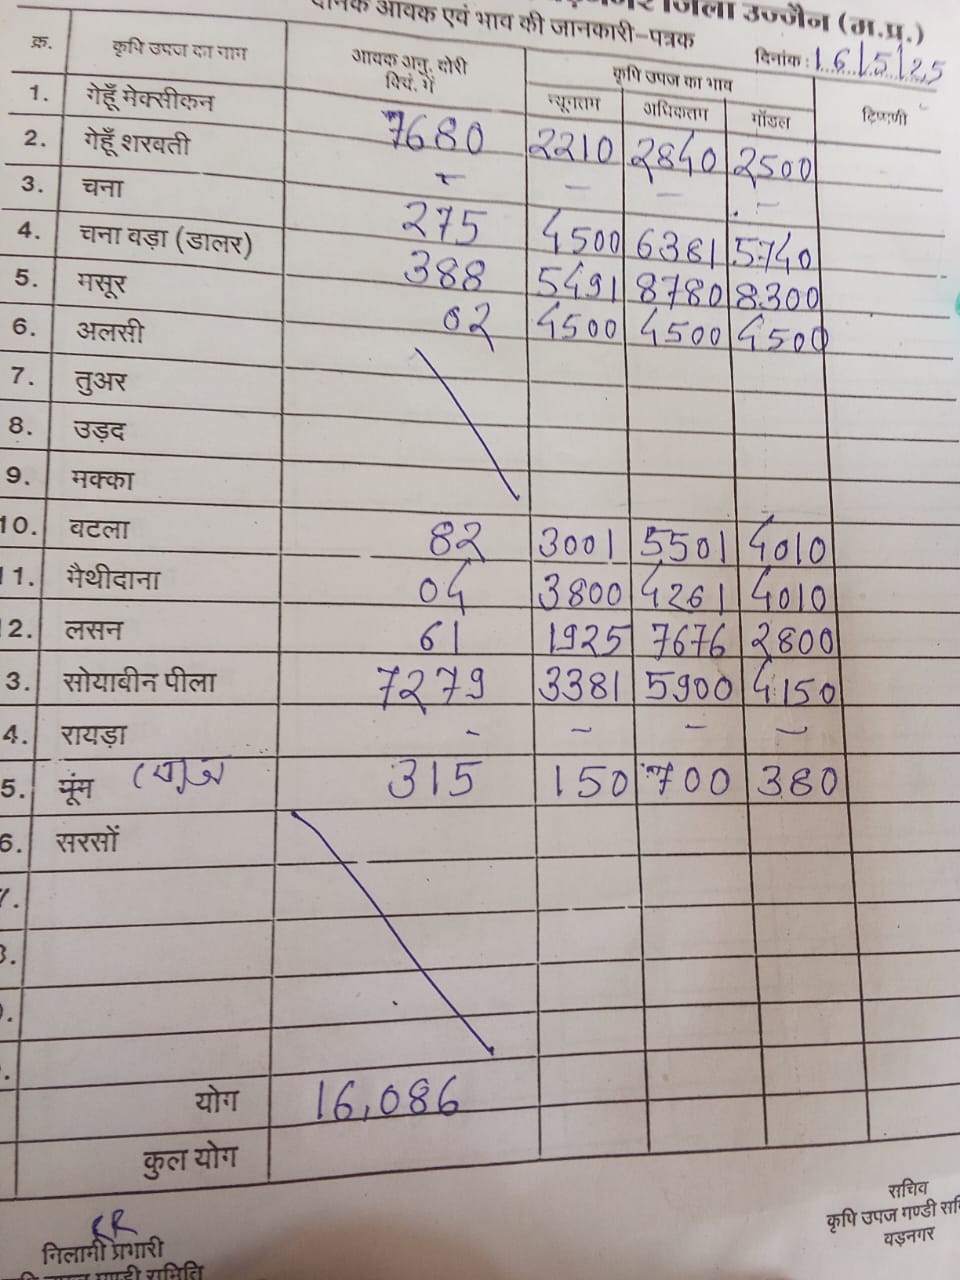 जिला उज्जैन (म.प्र.)
दैनिक आवक एवं भाव की जानकारी-पत्रक
दिनांक : 16/5/25
क्र. कृषि उपज का नाम आवक अनु. बोरी क्विं. में कृषि उपज का भाव टिप्पणी
न्यूनतम अधिकतम मॉडल
1. गेहूँ मेक्सीकन 7680 2210 2840 2500
2. गेहूँ शरबती - - - -
3. चना 275 4500 6381 5740
4. चना बड़ा (डालर) 388 5491 8780 8300
5. मसूर 02 4500 4500 4500
6. अलसी
7. तुअर
8. उड़द
9. मक्का
10. बटला 82 3001 5501 4010
11. मैथीदाना 04 3800 4261 4010
12. लसन 61 1925 7676 2800
3. सोयाबीन पीला 7279 3381 5900 4150
4. रायड़ा - - - -
5. मूंग 315 150 700 380
6. सरसों
7.
3.
योग 16,086
कुल योग
निलामी प्रभारी
सचिव
कृषि उपज मण्डी
बड़नगर